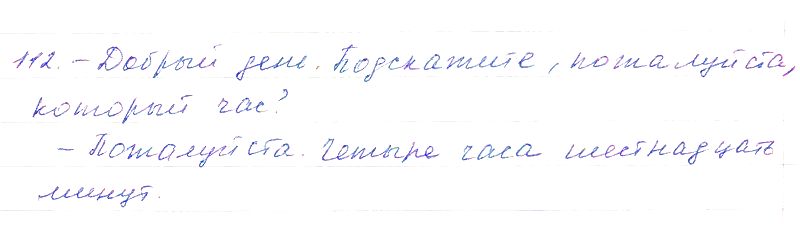 112. – Добрый день. Подскажите, пожалуйста,
который час?
– Пожалуйста. Четыре часа шестнадцать
минут.